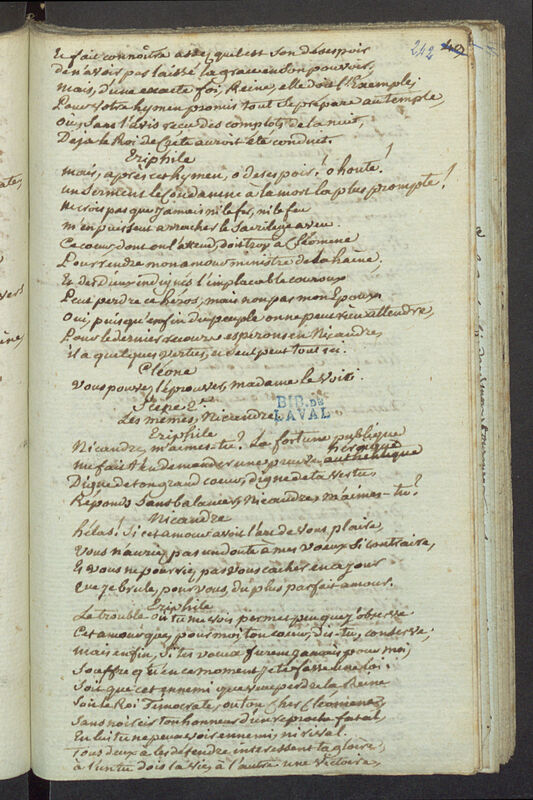 242
Et fait connoître assez quel est son desespoir
de n'avoir pas laissé la grace en son pouvoir,
Mais, d'une exacte foi, Reine, elle doit l'Exemple,
Pour votre hymen promis tout se prepare au temple,
Où, sans l'avis recu des complots de la nuit,
Deja le Roi de Crete auroit été conduit.
Eriphile
Mais, après cet hymen, o desespoir! o honte!
un serment le condamne à la mort la plus prompte!
Ne crois pas que jamais ni le fer, ni le feu
m'en puissent arracher le sacrilege aveu.
Ce coeur, dont on l'attend, doit trop à Cléomene
Pour rendre mon amour ministre de la haine,
Et des Dieux indignés l'implacable couroux
Peut perdre ce héros, mais non pas mon Epoux
Oui, puisqu'enfin du peuple on ne peut rien attendre,
Pour le dernier secours esperons en Nicandre,
il a quelques vertus, et seul peut tout ici.
Cléone
Vous pouvez l'éprouver, madame le Voici.
Scene 2e
Les mêmes, Nicandre
BIB. DE
LAVAL
Eriphile
Nicandre, m'aimes-tu? La fortune publique
me fait t'en demander une preuve heroique
authentique
Digne de ton grand coeur, digne de ta vertu,
Réponds sans balancer, Nicandre, m'aimes-tu?
Nicandre
hélas! Si cet amour avoit l'art de vous plaire,
Vous n'auriez pas un doute à mes voeux si contraire,
Et vous ne pourriez pas vous cacher en ce jour
Que je brule, pour vous, du plus parfait amour.
Eriphile
Le trouble où tu me vois permet peu que j'observe
Cet amour que, pour moi, ton coeur, dis-tu, conserve,
mais enfin, si tes voeux furent jamais pour moi,
Souffre qu'en ce moment je te fasse une loi:
Soit que cet ennemi que veut perdre la Reine
Soit le Roi Timocrate, ou ton cher Cléomene,
Sans noircir ton honneur d'un reproche fatal,
En lui tu ne peux voir ennemi, ni rival.
Tous deux à les defendre interessent ta gloire;
à l'un tu dois la vie, à l'autre une victoire,